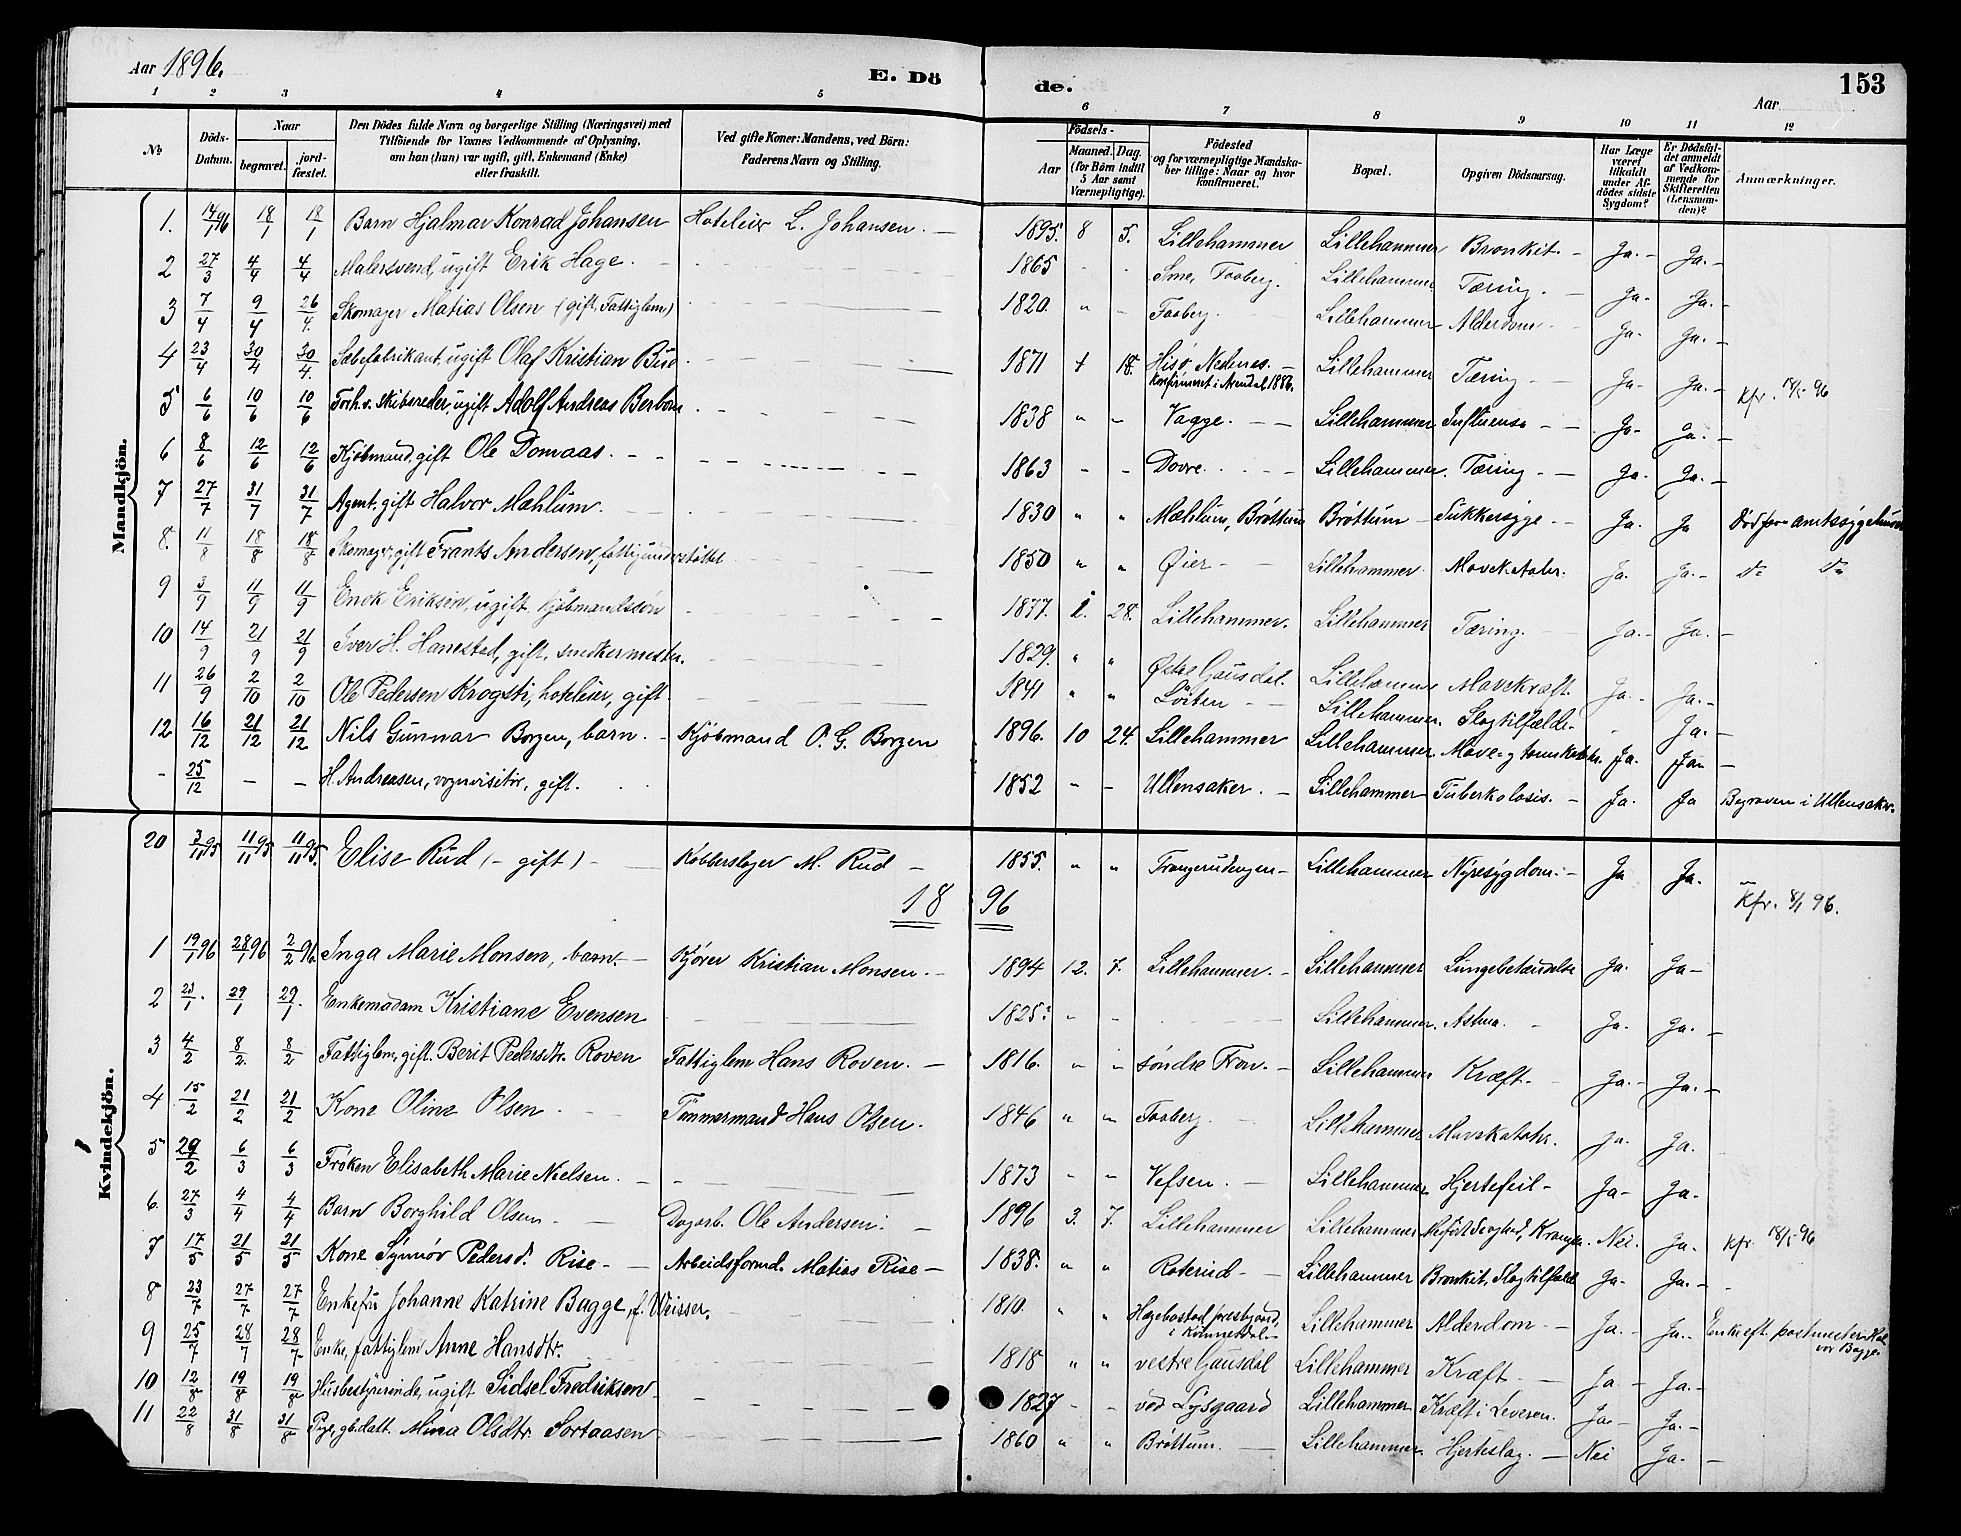 Aar 1896. E. Dö de. Aar 153
1 2 3 4 5 6 7 8 9 10 11 12
No. Döds-Datum. Naar begravet. jordfæstet. Den Dödes fulde Navn og borgerlige Stilling (Næringsvei) med Tilföiende for Voxnes Vedkommende af Oplysning, om han (hun) var ugift, gift, Enkemand (Enke) eller fraskilt. Ved gifte Koner: Mandens, ved Börn: Faderens Navn og Stilling. Födsels- Aar Maaned. Dag. (for Börn indtil 5 Aar samt Værnepligtige). Födested og for værnepligtige Mandskaber tillige: Naar og hvor konfirmeret. Bopæl. Opgiven Dödsaarsag. Har Læge været tilkaldt under Afdödes sidste Sygdom? Er Dödsfaldet anmeldt af Vedkommende for Skifteretten (Lensmanden)? Anmærkninger.
Mandkjön.
1. 14/1 96 18/1 18/1 Barn Hjalmar Konrad Johansen Hoteleier L. Johansen. 1895. 8 5. Lillehammer Lillehammer Bronkit. Ja. Ja.
2 27/3 4/4 4/4 Malersvend, ugift Erik Hage. 1865 Sme, Faaberg. Lillehammer Tæring. Ja. Ja.
3 7/4 9/4 26/4. Skomager Matias Olsen (gift, Fattiglem) 1820. " Faaberg. Lillehammer Alderdom Ja. Ja.
4 23/4 30/4 30/4. Sæbefabrikant, ugift Olaf Kristian Buø 1871 18. Hisø, Nedenes. Lillehammer Tæring Ja. Ja. Kfr. 18/5 96
Konfirmeret i Arendal 1886.
5 6/6 10/6 10/6 Forh.v. skibsreder, ugift Adolf Andreas Berbom 1838 " " Vagge. Lillehammer Influensa Ja. Ja.
6 8/6 12/6 12/6 Kjöbmand, gift Ole Domaas. 1863 " Dovre. Lillehammer. Tæring Ja. Ja.
7 27/7 31/7 31/7 Agent, gift Halvor Mæhlum. 1830 " " Mæhlum, Brøttum Brøttum Sukkersyge Ja. Ja amtssygehuset
8. 11/8 18/8 18/8 Skomager, gift Frants Andersen, fattigunderstøttet 1850 " " Øier Lillehammer. Ja. Ja. Do Do
9 3/9 11/9 11/9 Enck Eriksen, ugift, kjöbmandssön 1877. 28. Lillehammer. Lillehammer Tæring. Ja. Ja.
10 14/9 21/9 21/9 Iver H. Hanestad, gift, snedkermester. 1829. " " Østre Gausdal. Lillehammer Mavekræft. Ja. Ja.
11 26/9 2/10 2/10 Ole Pedersen Krogsti, hoteleier, gift 1841 " " Löiten Lillehammer. Slagtilfælde. Ja.
12. 16/12 21/12 21/12 Nils Gunnar Borgen, barn. Kjöbmand O. G. Borgen 1896. 10 24. Lillehammer Lillehammer. Mave- og tarmkatarr. Ja. Ja
- 25/12 - - H. Andreasen, vognvisitör, gift. 1852 - - Ullensaker. Lillehammer Tuberkolosis. Ja. Ja Begraven i Ullensaker.
Kvindekjön.
20 3/11 95 11/11 95 11/11 95. Elise Rud (- gift) Kobberslager M. Rud 1855. " " Lillehammer Nyresygdom. Ja Ja. Kfr. 8/1 96.
18 96
1 19/1 96 28/1 96 2/2 96. Inga Marie Monsen, barn. Kjörer Kristian Monsen. 1894 12. 7. Lillehammer. Lillehammer Lungebetændelse Ja. Ja
2 23/1. 29/1 29/1. Enkemadam Kristiane Evensen 1825? Lillehammer. Astma. Ja. Ja.
3 4/2 8/2. 8/2 Fattiglem, gift. Berit Pedersdtr. Roven Fattiglem Hans Roven. 1816. " " søndre Fron. Lillehammer Kræft. Ja. Ja.
4 15/2 21/2 21/2 Kone Oline Olsen Tömmermand Hans Olsen. 1846 " " Faaberg. Lillehammer Mavekatarr. Ja. Ja.
5 29/2 6/3 6/3 Fröken Elisabeth Marie Nielsen. 1873 Vefsen. Lillehammer Hjertefeil Ja Ja.
6. 27/3 4/4 4/4 Barn Borghild Olsen Dagarb. Ole Andersen. 1896 3. 7. Lillehammer Lillehammer Nei. Ja. Kfr. 18/5 96
7 17/5 21/5 21/5 Kone Synnøv Pedersd. Rise Arbeidsformd. Matias Rise 1838. " " Roterud Lillehammer Bronkit, Slagtilfælde Ja. Ja.
8 23/7 27/7 27/7 Enkefru Johanne Katrine Bagge, f. Weisser. 1810. " " Hægebostad præstgaard, i Lillehammer Alderdom Ja. Ja. Enke eft. postmester Halvor Bagge.
9 25/7 28/7 28/7 Enke, fattiglem Anne Hansdtr. 1818 " " vestre Gausdal Lillehammer Kræft Ja Ja.
10 12/8 19/8 19/8 Husbestyrerinde, ugift Sidsel Fredriksen 1827 ved Lysgaard Lillehammer Kræft i Leveren. Ja Ja.
11 22/8 31/8 31/8 Pige, gb.datt. Mina Olsdtr. Sortaasen 1860 " " Brøttum. Lillehammer. Hjerteslag. Nei Ja.